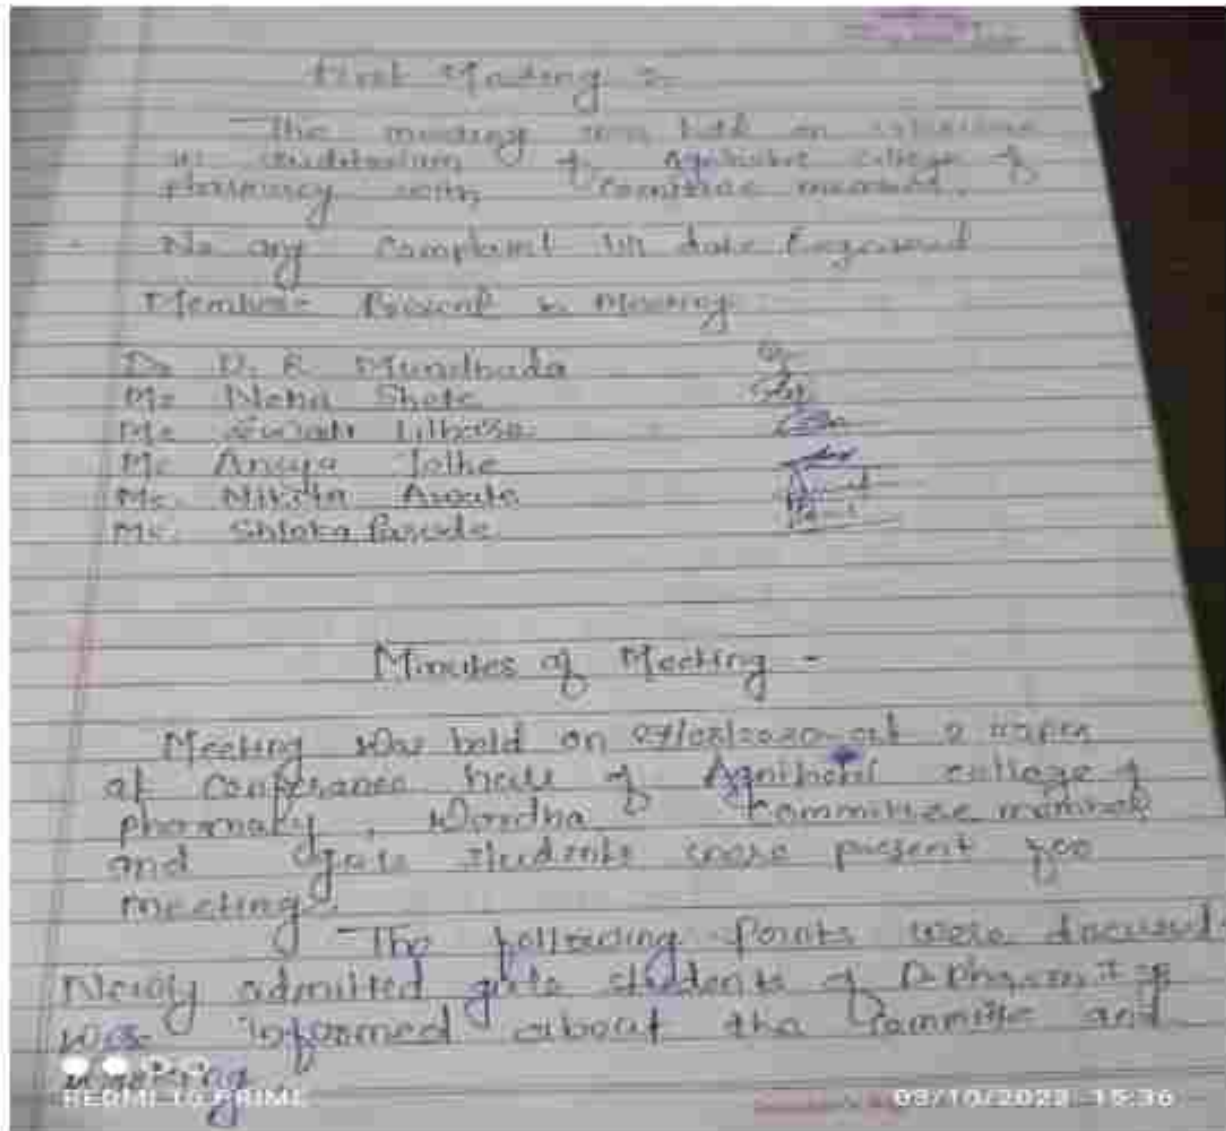 First Meeting :-
The meeting was held on
at Auditorium of Agnihotri college of
pharmacy with committee member.
No any complaint till date registered
Members Present in Meeting
Dr D. R. Mundhada
Ms Neha Shete
Ms Swati
Ms Anuja Tolhe
Ms. Nikita Awate
Ms. Shloka Parode
Minutes of Meeting -
Meeting was held on at
at Conferance hall of Agnihotri college of
pharmacy, Wardha committee member
and girls students were present for
meeting.
The following points were discussed.
Newly admitted girls students of D.Pharm
was informed about the committe and
working
REDMI 10 PRIME
03/10/2023 15:36